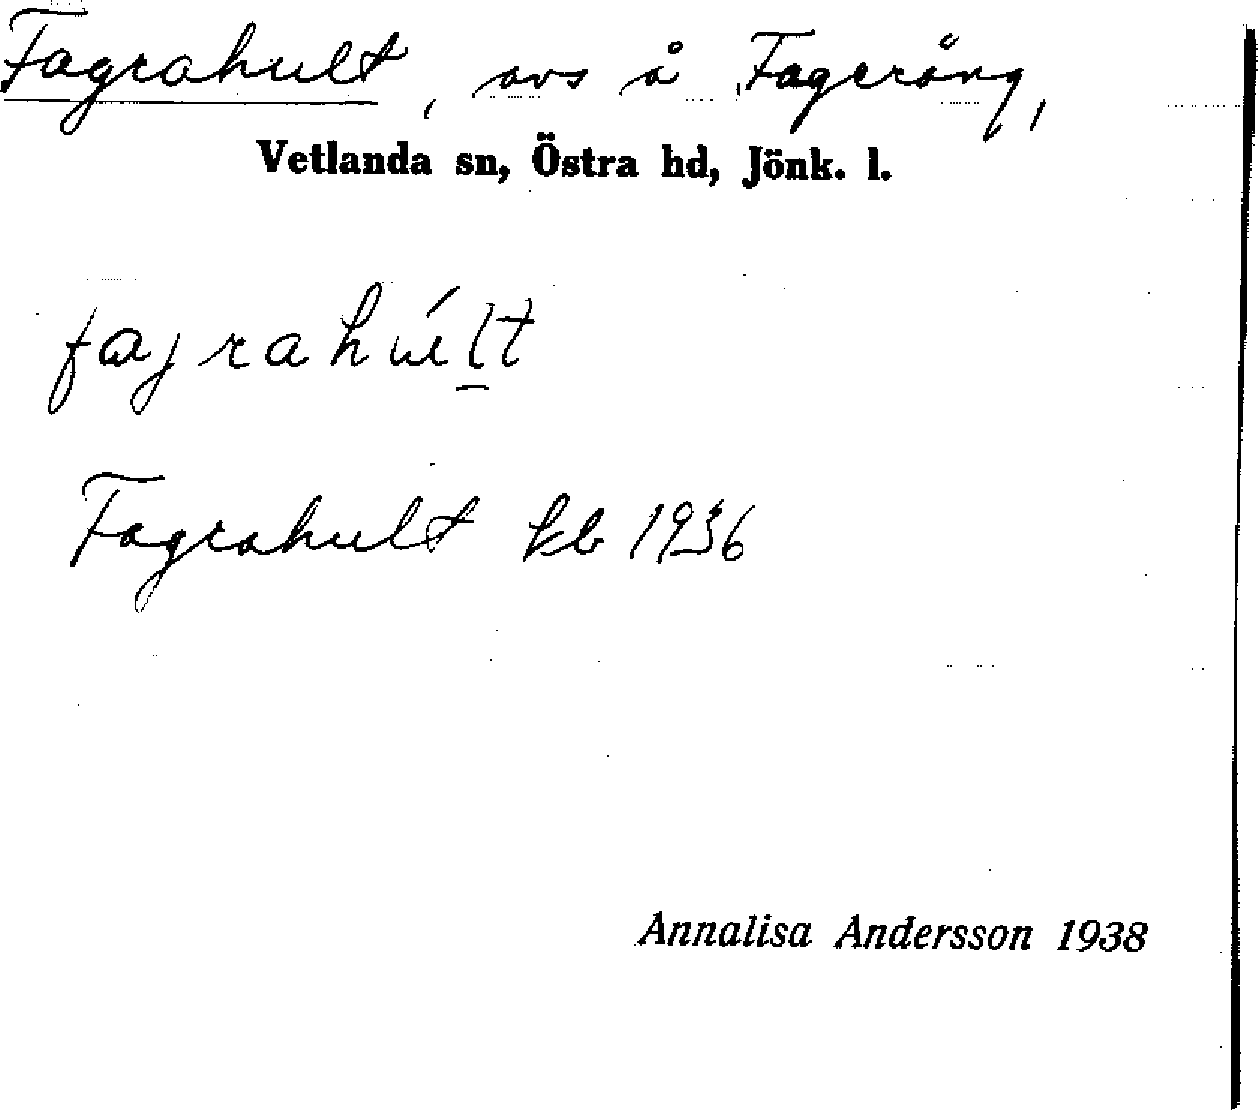 Fagrahult, avs å Fageräng,
Vetlanda sn, Östra hd, Jönk. l.
fajrahúlt
Fagrahult kb 1936
Annalisa Andersson 1938